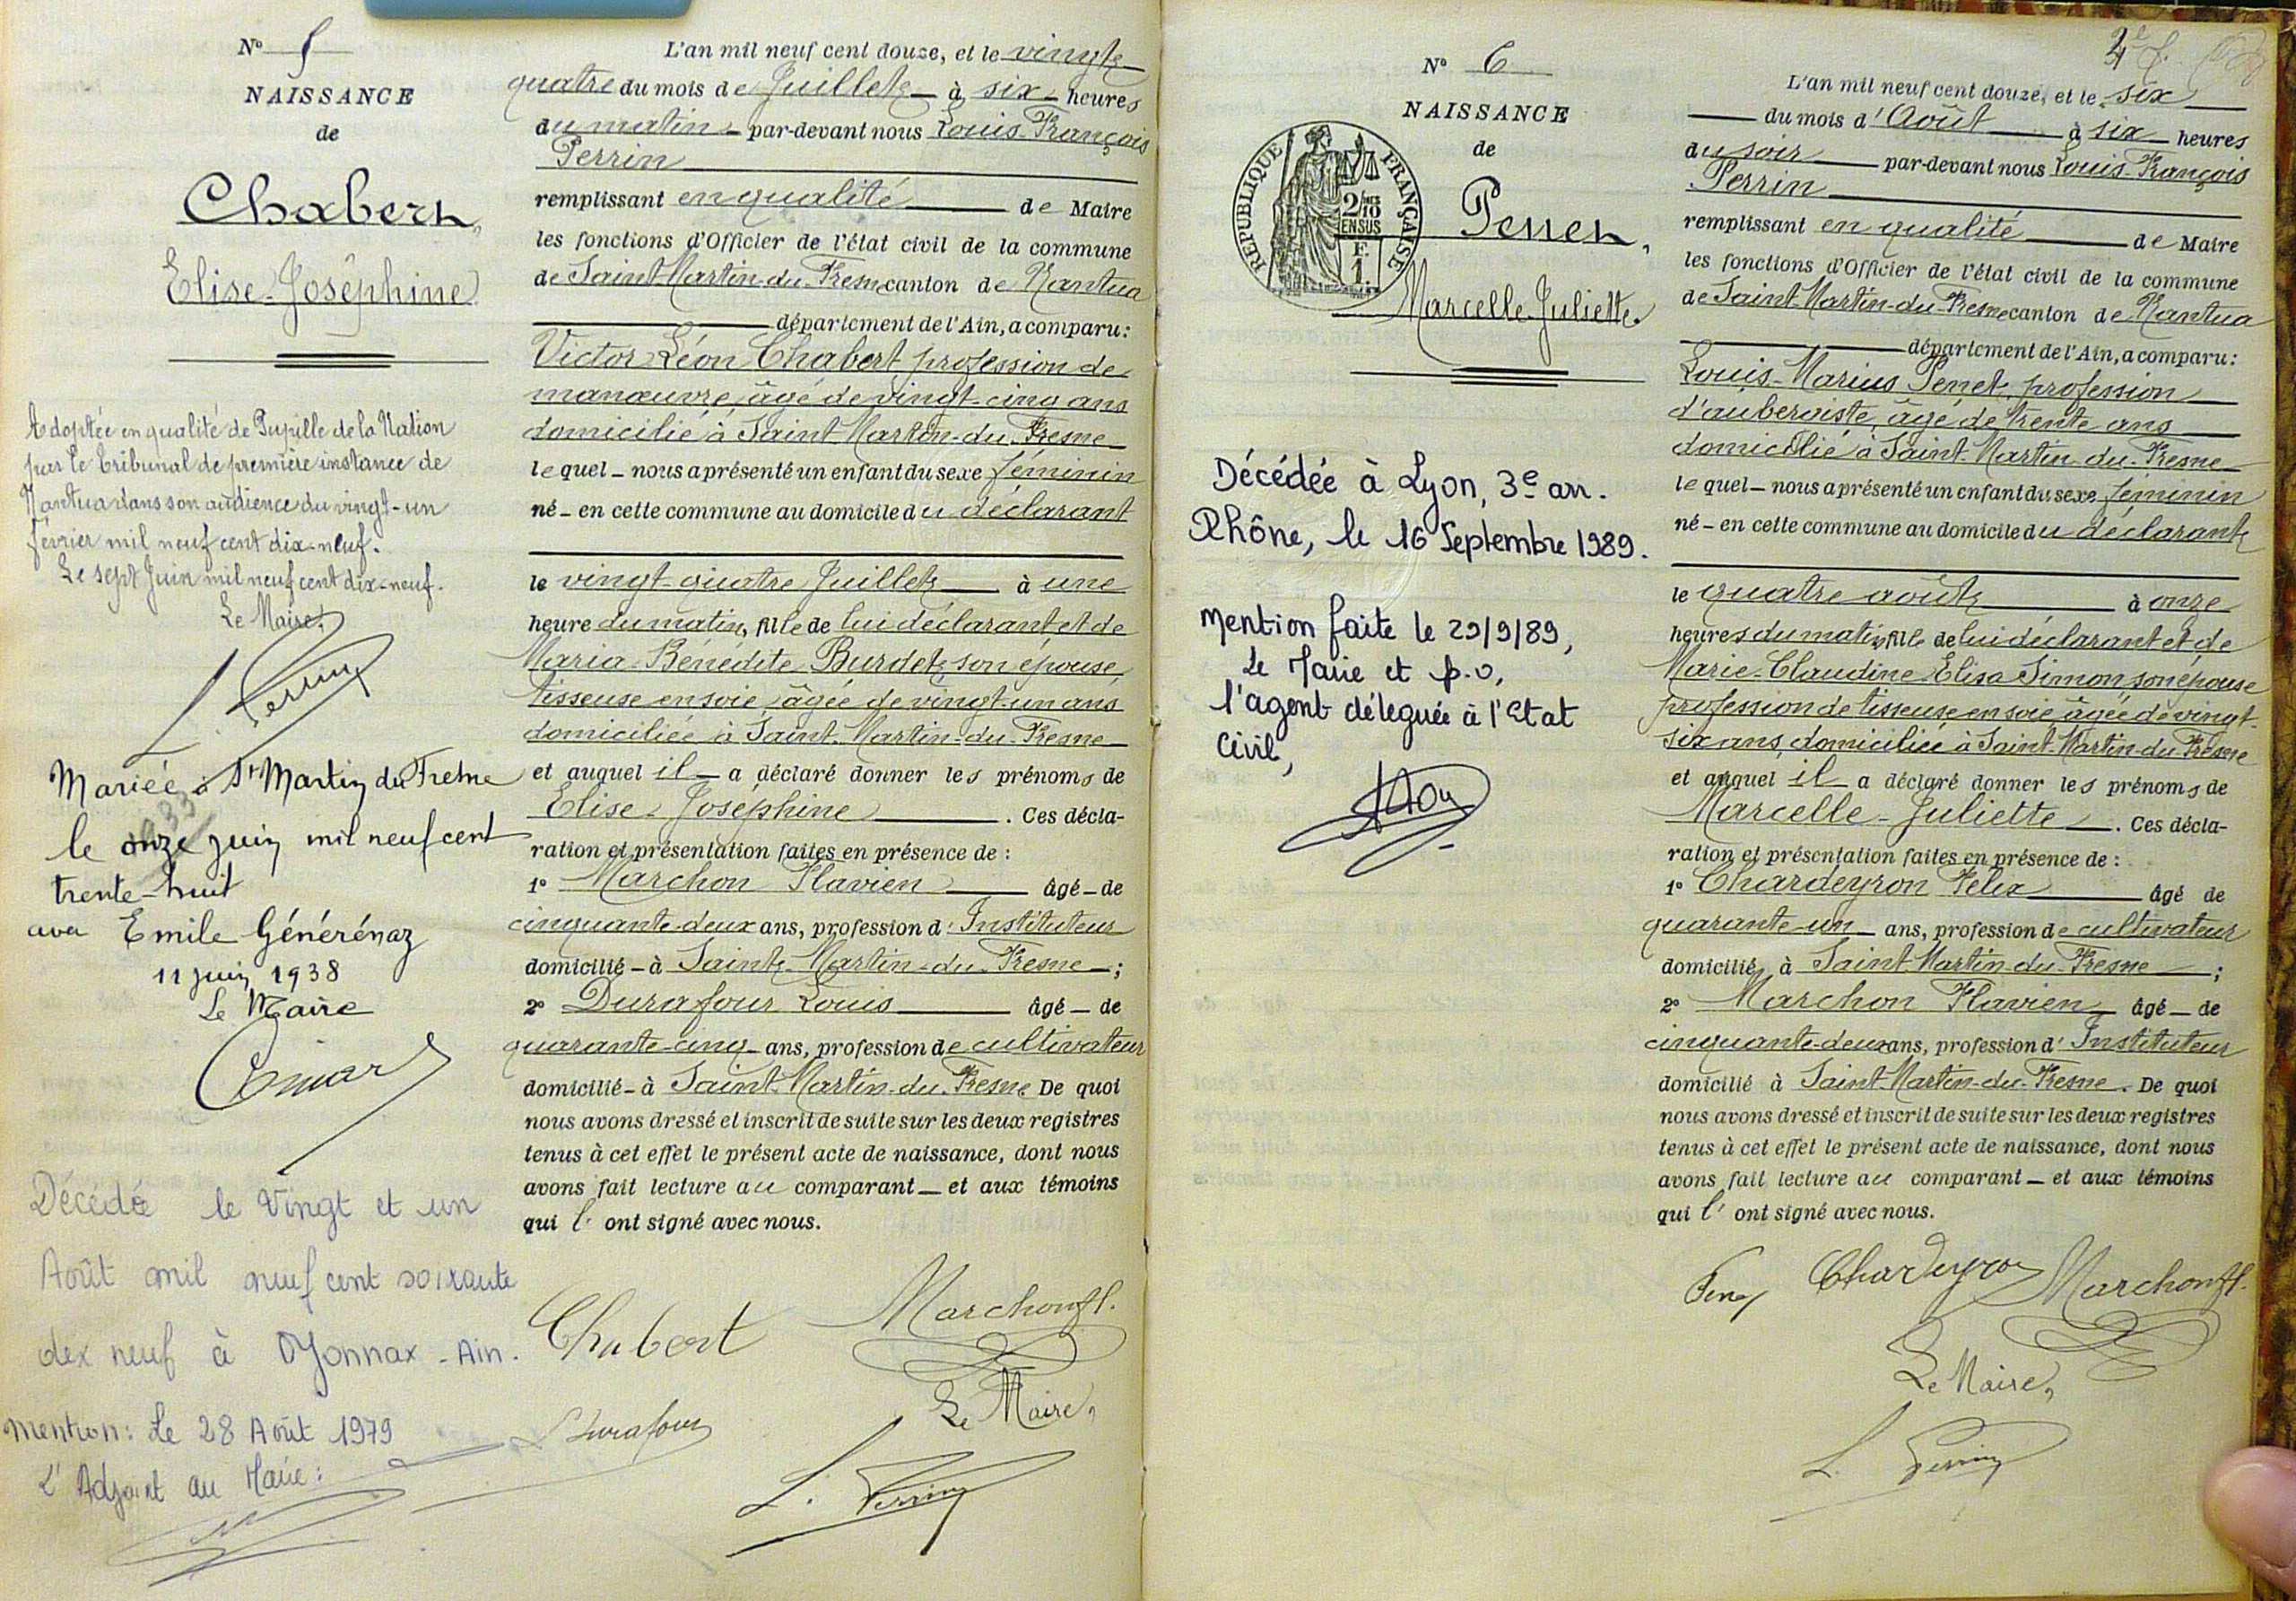 N° 5
NAISSANCE
de
Chabert,
Elise-Joséphine
Adoptée en qualité de Pupille de la Nation
par le Tribunal de première instance de
Nantua dans son audience du vingt-un
février mil neuf cent dix-neuf.
Le sept Juin mil neuf cent dix-neuf.
Le Maire,
L. Perrin
Mariée à St Martin du Fresne
le onze juin mil neuf cent
trente-huit
avec Emile Générénaz
11 juin 1938
Le Maire
Décédée le Vingt et un
Août mil neuf cent soixante
dix neuf à Oyonnax - Ain.
Mention: Le 28 Août 1979
L'Adjoint au Maire:
L'an mil neuf cent douze, et le vingt
quatre du mois de Juillet à six heures
du matin par-devant nous Louis-François
Perrin
remplissant en qualité de Maire
les fonctions d'Officier de l'état civil de la commune
de Saint-Martin-du-Fresne canton de Nantua
département de l'Ain, a comparu:
Victor Léon Chabert profession de
manœuvre, âgé de vingt-cinq ans
domicilié à Saint-Martin-du-Fresne
lequel nous a présenté un enfant du sexe féminin
né en cette commune au domicile du déclarant
le vingt-quatre Juillet à une
heure du matin, fille de lui déclarant et de
Maria Bénédite Burdet, son épouse,
tisseuse en soie, âgée de vingt-un ans
domiciliée à Saint-Martin-du-Fresne
et auquel il a déclaré donner les prénoms de
Elise-Joséphine. Ces décla-
ration et présentation faites en présence de :
1° Marchon Flavien âgé de
cinquante-deux ans, profession d'Instituteur
domicilié à Saint-Martin-du-Fresne ;
2° Durafour Louis âgé de
quarante-cinq ans, profession de cultivateur
domicilié à Saint-Martin-du-Fresne. De quoi
nous avons dressé et inscrit de suite sur les deux registres
tenus à cet effet le présent acte de naissance, dont nous
avons fait lecture au comparant et aux témoins
qui l' ont signé avec nous.
Chabert Marchon fl.
Durafour Le Maire,
L. Perrin
N° 6
NAISSANCE
de
REPUBLIQUE FRANÇAISE
2/10 EN SUS
F.
1.
Penet,
Marcelle-Juliette.
Décédée à Lyon, 3e arr.
Rhône, le 16 Septembre 1989.
Mention faite le 29/9/89,
Le Maire et p.o,
l'agent déleguée à l'Etat
Civil,
4e f.
L'an mil neuf cent douze, et le six
du mois d'Août à six heures
du soir par-devant nous Louis-François
Perrin
remplissant en qualité de Maire
les fonctions d'Officier de l'état civil de la commune
de Saint-Martin-du-Fresne canton de Nantua
département de l'Ain, a comparu:
Louis-Marius Penet, profession
d'aubergiste, âgé de trente ans
domicilié à Saint-Martin-du-Fresne
lequel nous a présenté un enfant du sexe féminin
né en cette commune au domicile du déclarant
le quatre août à onze
heures du matin fille de lui déclarant et de
Marie-Claudine Elisa Simon son épouse
profession de tisseuse en soie, âgée de vingt-
six ans, domiciliée à Saint-Martin-du-Fresne
et auquel il a déclaré donner les prénoms de
Marcelle-Juliette. Ces décla-
ration et présentation faites en présence de :
1° Chardeyron Felix âgé de
quarante-un ans, profession de cultivateur
domicilié à Saint-Martin-du-Fresne ;
2° Marchon Flavien âgé de
cinquante-deux ans, profession d'Instituteur
domicilié à Saint-Martin-du-Fresne. De quoi
nous avons dressé et inscrit de suite sur les deux registres
tenus à cet effet le présent acte de naissance, dont nous
avons fait lecture au comparant et aux témoins
qui l' ont signé avec nous.
Penet Chardeyron Marchon fl.
Le Maire,
L. Perrin